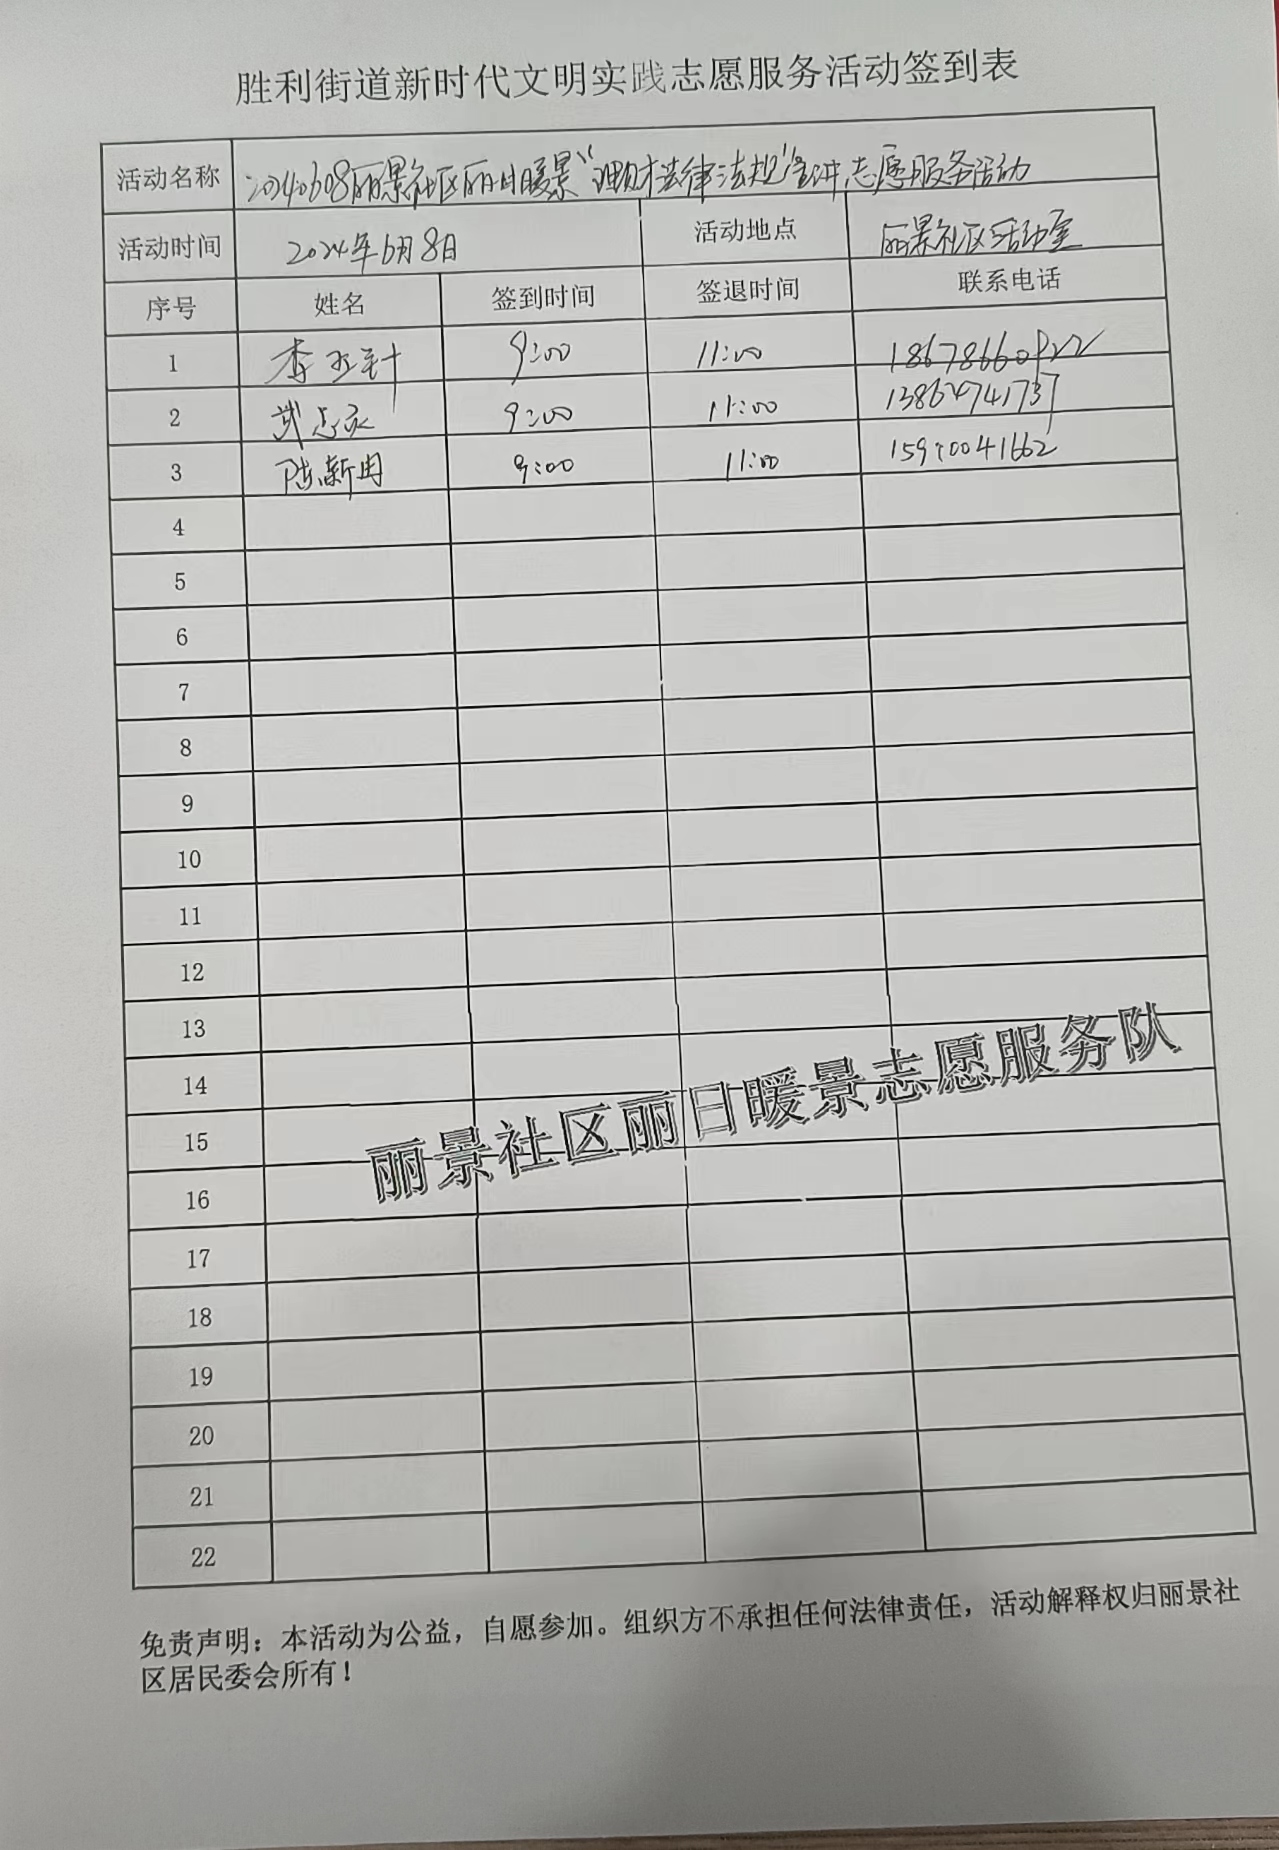 胜利街道新时代文明实践志愿服务活动签到表
活动名称 20240608丽景社区丽日暖景“理财法律法规”宣讲志愿服务活动
活动时间 2024年6月8日 活动地点 丽景社区活动室
序号 姓名 签到时间 签退时间 联系电话
1 9:00 11:00 18678660922
2 9:00 11:00
3 9:00 11:00
4
5
6
7
8
9
10
11
12
13
14
15
16
17
18
19
20
21
22
丽景社区丽日暖景志愿服务队
免责声明：本活动为公益，自愿参加。组织方不承担任何法律责任，活动解释权归丽景社
区居民委会所有！